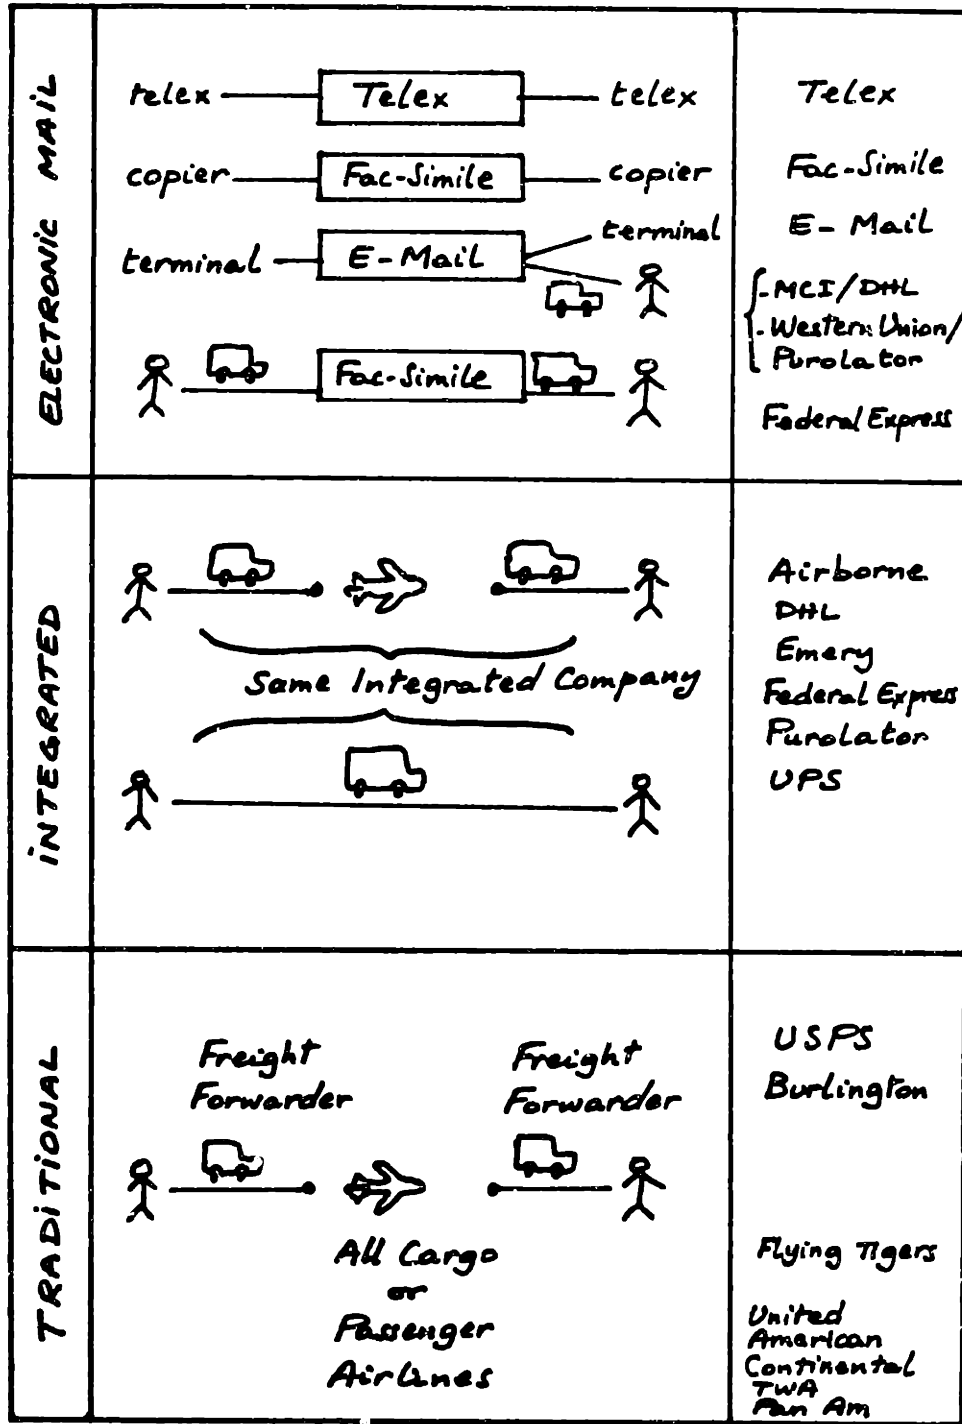 ELECTRONIC MAIL
telex Telex telex
copier Fac-Simile copier
terminal
terminal E-Mail
Fac-Simile
Telex
Fac-Simile
E-Mail
-MCI/DHL
-Western Union/
Purolator
Federal Express
INTEGRATED
Same Integrated Company
Airborne
DHL
Emery
Federal Express
Purolator
UPS
TRADITIONAL
Freight
Forwarder
Freight
Forwarder
All Cargo
or
Passenger
Airlines
USPS
Burlington
Flying Tigers
United
American
Continental
TWA
Pan Am